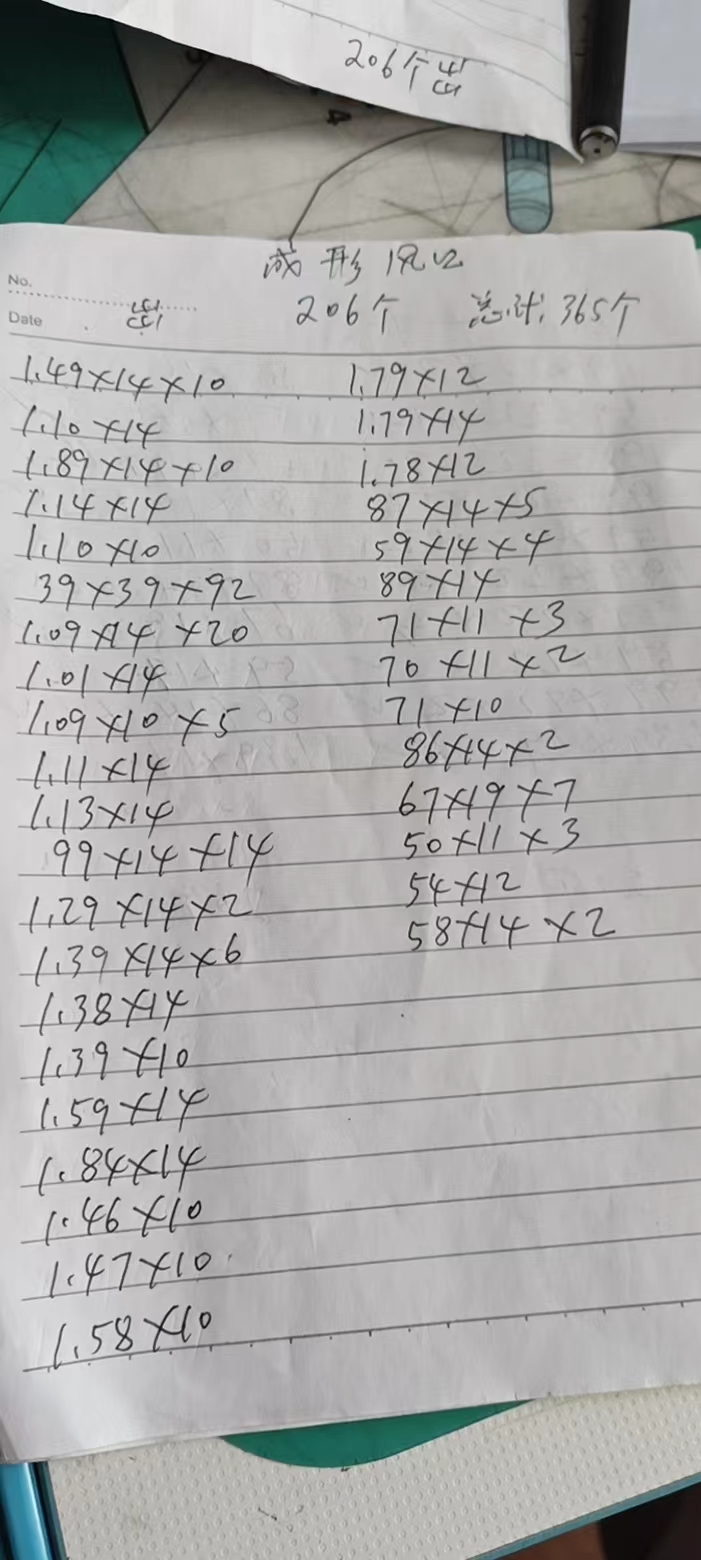 206个
成形风口
No.
Date
206个 总计: 365个
1.49×14×10
1.10×14
1.89×14×10
1.14×14
1.10×10
39×39×92
1.09×14×20
1.01×14
1.09×10×5
1.11×14
1.13×14
99×14×14
1.29×14×2
1.39×14×6
1.38×14
1.39×10
1.59×14
1.84×14
1.46×10
1.47×10
1.58×10
1.79×12
1.79×14
1.78×12
87×14×5
59×14×4
89×14
71×11×3
70×11×2
71×10
86×14×2
67×19×7
50×11×3
54×12
58×14×2